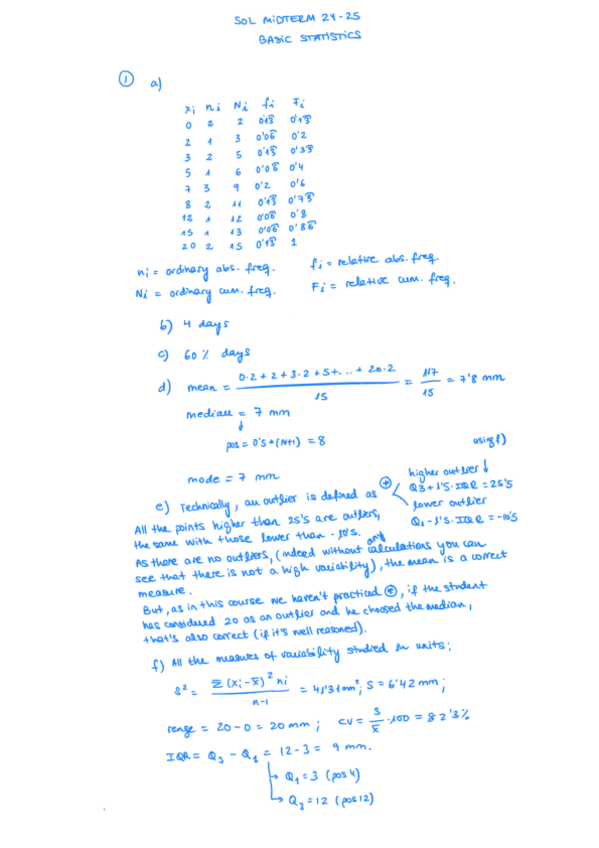 SOL MIDTERM 24-25
BASIC STATISTICS
① a)
xi ni Ni fi Fi
0 2 2 0'1͡3 0'1͡3
2 1 3 0'0͡6 0'2
3 2 5 0'1͡3 0'3͡3
5 1 6 0'0͡6 0'4
7 3 9 0'2 0'6
8 2 11 0'1͡3 0'7͡3
12 1 12 0'0͡6 0'8
15 1 13 0'0͡6 0'8͡6
20 2 15 0'1͡3 1
ni = ordinary abs. freq. fi = relative abs. freq.
Ni = ordinary cum. freq. Fi = relative cum. freq.
b) 4 days
c) 60% days
d) mean = (0·2 + 2 + 3·2 + 5 + ... + 20·2) / 15 = 117 / 15 = 7'8 mm
median = 7 mm
↓
pos = 0'5 * (N+1) = 8
using f)
mode = 7 mm
higher outlier ↓
e) Technically, an outlier is defined as ⊛ Q3 + 1'5·IQR = 25'5
lower outlier
Q1 - 1'5·IQR = -10'5
All the points higher than 25'5 are outliers,
the same with those lower than -10'5.
As there are no outliers, (indeed without any calculations you can
see that there is not a high variability), the mean is a correct
measure.
But, as in this course we haven't practiced ⊛, if the student
has considered 20 as an outlier and he choosed the median,
that's also correct (if it's well reasoned).
f) All the measures of variability studied in units:
S² = Σ (xi - x̄)² ni / n-1 = 41'31 mm²; S = 6'42 mm;
range = 20 - 0 = 20 mm; CV = S / x̄ · 100 = 82'3%
IQR = Q3 - Q1 = 12 - 3 = 9 mm.
↳ Q1 = 3 (pos 4)
↳ Q3 = 12 (pos 12)